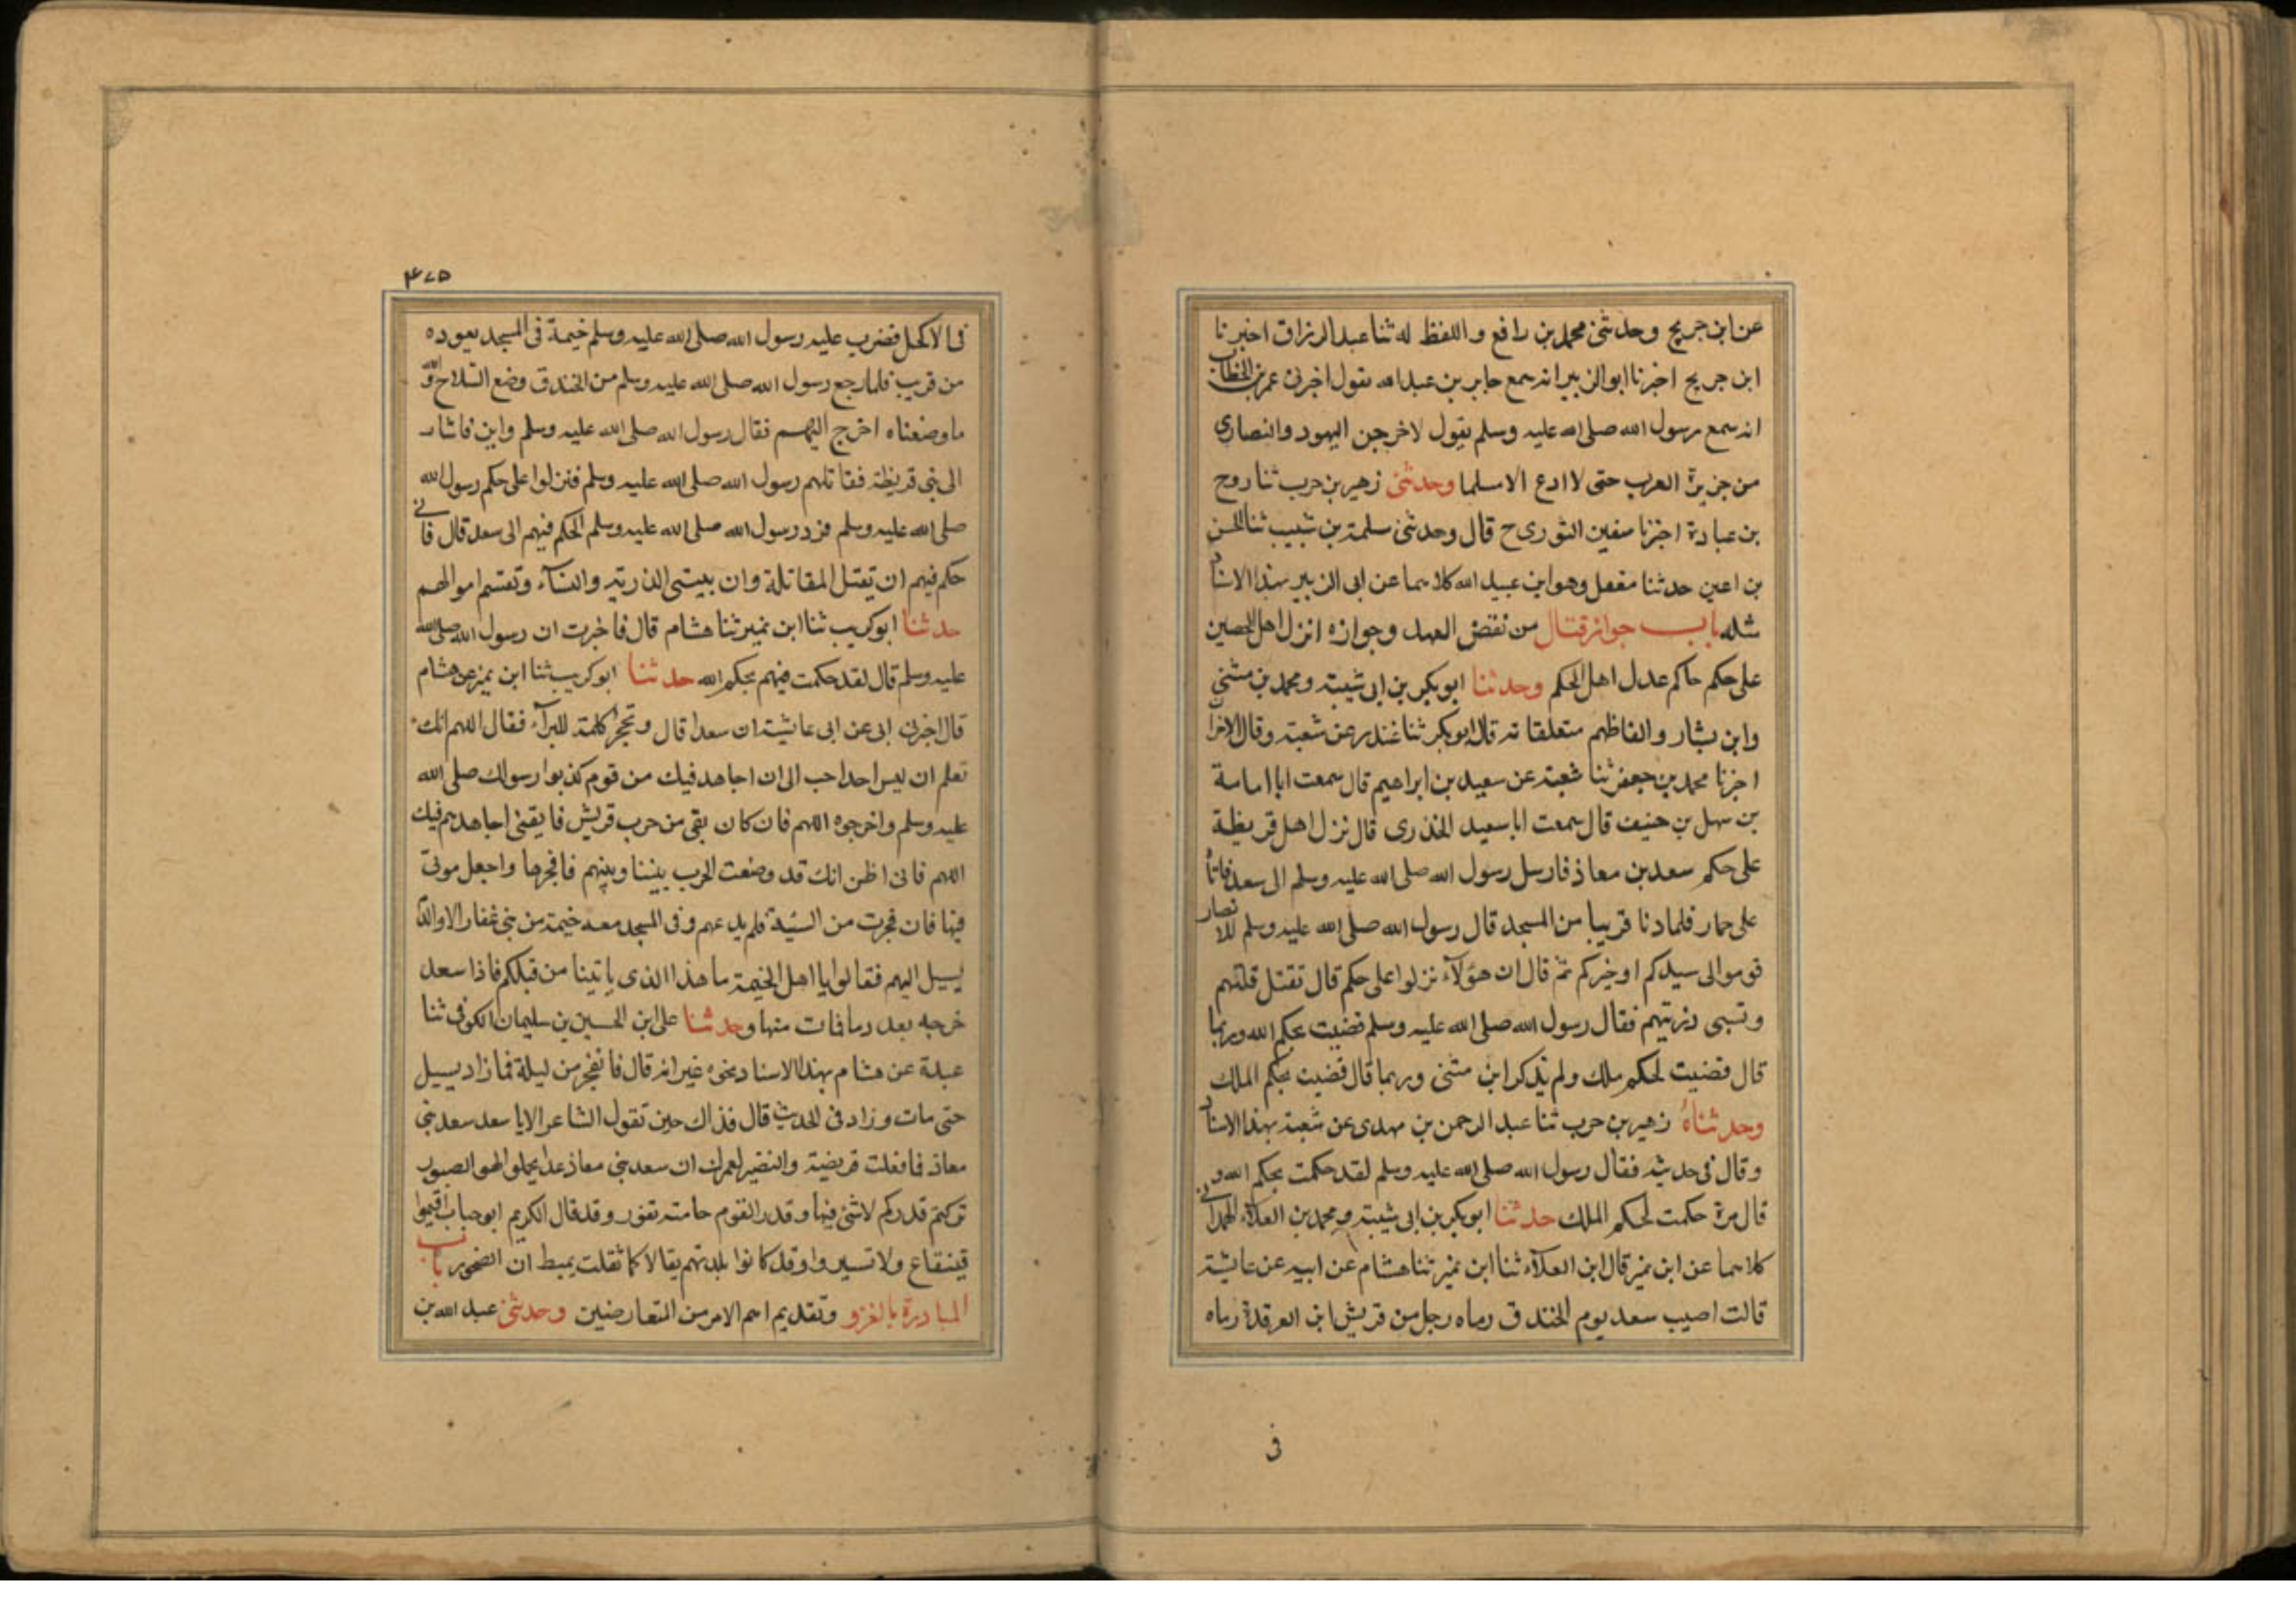 عن ابن جريج وحدثنى محمد بن رافع واللفظ له ثنا عبد الرزاق اخبرنا
ابن جريج اخبرنا ابوالزبير انه سمع جابر بن عبد الله يقول اخبرنى عمر بن الخطاب
انه سمع رسول الله صلى الله عليه وسلم يقول لاخرجن اليهود والنصارى
من جزيرة العرب حتى لا ادع الا مسلما وحدثنى زهير بن حرب ثنا روح
بن عبادة اخبرنا سفين الثورى ح قال وحدثنى سلمة بن شبيب ثنا الحسن
بن اعين حدثنا معقل وهو ابن عبيد الله كلاهما عن ابى الزبير بهذا الاسناد
مثله باب جواز قتال من نقض العهد وجوازه انزل اهل الحصين
على حكم حاكم عدل اهل الحكم وحدثنا ابو بكر بن ابى شيبة ومحمد بن مثنى
وابن بشار والفاظهم متعلقاته قال ابو بكر ثنا غندر عن شعبة وقال الاخران
اخبرنا محمد بن جعفر ثنا شعبة عن سعيد بن ابراهيم قال سمعت ابا امامة
بن سهل بن حنيف قال سمعت ابا سعيد الخذرى قال نزل اهل قريظة
على حكم سعد بن معاذ فارسل رسول الله صلى الله عليه وسلم الى سعد فاتاه
على حمار فلما دنا قريبا من المسجد قال رسول الله صلى الله عليه وسلم للانصار
قوموا الى سيدكم او خيركم ثم قال ان هؤلآء نزلوا على حكم قال تقتل قلتهم
وتسبى ذريتهم فقال رسول الله صلى الله عليه وسلم قضيت بحكم الله وربما
قال قضيت لحكم ملك ولم يذكر ابن مثنى وربما قال قضيت بحكم الملك
وحدثناه زهير بن حرب ثنا عبد الرحمن بن مهدى عن شعبة بهذا الاسناد
وقال فى حديثه فقال رسول الله صلى الله عليه وسلم لقد حكمت بحكم الله و
قال مرة حكمت لحكم الملك حدثنا ابو بكر بن ابى شيبة ومحمد بن العلآء الهمدانى
كلاهما عن ابن نمير قال ابن العلآء ثنا ابن نمير ثنا هشام عن ابيه عن عايشة
قالت اصيب سعد يوم الخندق رماه رجل من قريش ابن العرقدة رماه
فى
٤٧٥
فى الاكحل فضرب عليه رسول الله صلى الله عليه وسلم خيمة فى المسجد يعوده
من قريب فلما رجع رسول الله صلى الله عليه وسلم من الخندق وضع السلاح والله
ما وضعناه اخرج اليهم فقال رسول الله صلى الله عليه وسلم واين فاشار
الى بنى قريظة فقاتلهم رسول الله صلى الله عليه وسلم فنزلوا على حكم رسول الله
صلى الله عليه وسلم فرد رسول الله صلى الله عليه وسلم الحكم فيهم الى سعد قال فانى
حكم فيهم ان تقتل المقاتلة وان يسبى الذرية والنسآء وتقسم اموالهم
حدثنا ابو كريب ثنا ابن نمير ثنا هشام قال فاخبرت ان رسول الله صلى الله
عليه وسلم قال لقد حكمت فيهم بحكم الله حدثنا ابو كريب ثنا ابن نمير عن هشام
قال اخبرنى ابى عن ابى عائشة ان سعدا قال وتحجر كلمة للبرآء فقال اللهم انك
تعلم ان ليس احد احب الى ان اجاهد فيك من قوم كذبوا رسولك صلى الله
عليه وسلم واخرجوه اللهم فان كان بقى من حرب قريش فابقنى اجاهدهم فيك
اللهم فانى اظن انك قد وضعت الحرب بيننا وبينهم فافجرها واجعل موتى
فيها فان فجرت من السيدة فلم يدعهم وفى المسجد معه خيمة من بنى غفار الا والدم
يسيل اليهم فقالوا يا اهل الخيمة ما هذا الذى ياتينا من قبلكم فاذا سعد
خرجه بعد دما فات منها وحدثنا على ابن الحسين بن سليمان الكوفى ثنا
عبدة عن هشام بهذا الاسناد نحوه غير انه قال فانفجر من ليلة فما زاد يسيل
حتى مات وزاد فى الحديث قال فذاك حين تقول الشاعر الا يا سعد سعد بنى
معاذ فما فعلت قريضة والنضير لعمرك ان سعد بنى معاذ غدا يحملوا لهو الصبور
تركتم قدركم لا شئ فيها وقدر القوم حامته تفور وقد قال الكريم ابو حباب اقيموا
قينقاع ولا تسيروا وقد كانوا بلدتهم يقالا كما ثقلت بميط ان الصخور باب
المبادرة بالغزو وتقديم اهم الامر من المتعارضين وحدثنى عبد الله بن